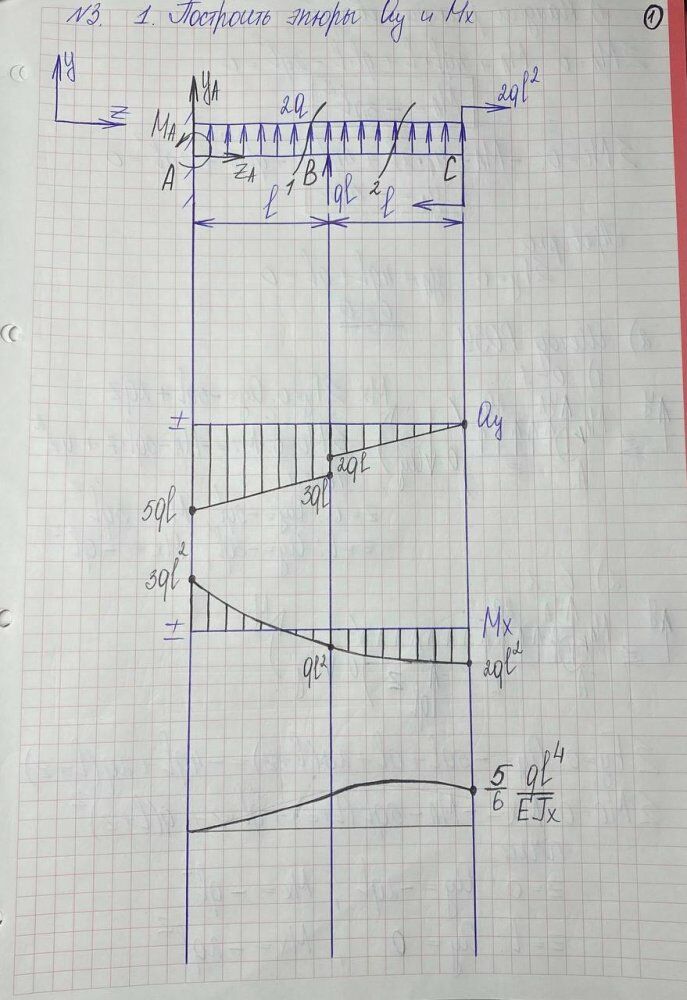 №3. 1. Построить эпюры Qy и Mx
1
y
z
yA
2q
2ql²
MA
A
zA
1
B
2
C
ql
l
l
±
Qy
2ql
3ql
5ql
3ql²
±
Mx
ql²
2ql²
5/6 ql⁴/EJx